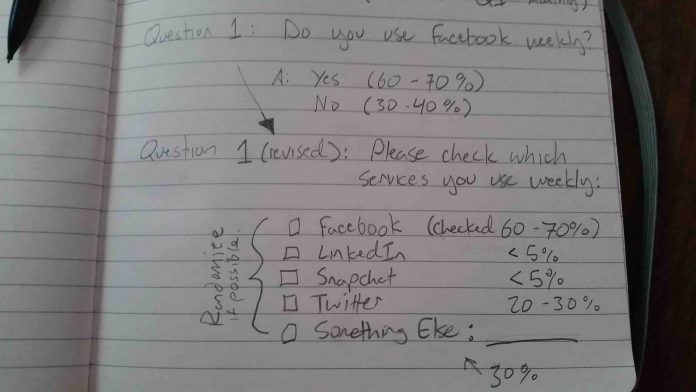 Question 1: Do you use Facebook weekly?
A: Yes (60-70%)
No (30-40%)
Question 1 (revised): Please check which
services you use weekly:
Randomize
if possible.
☐ Facebook (checked 60-70%)
☐ LinkedIn <5%
☐ Snapchat <5%
☐ Twitter 20-30%
☐ Something Else: ____
30%